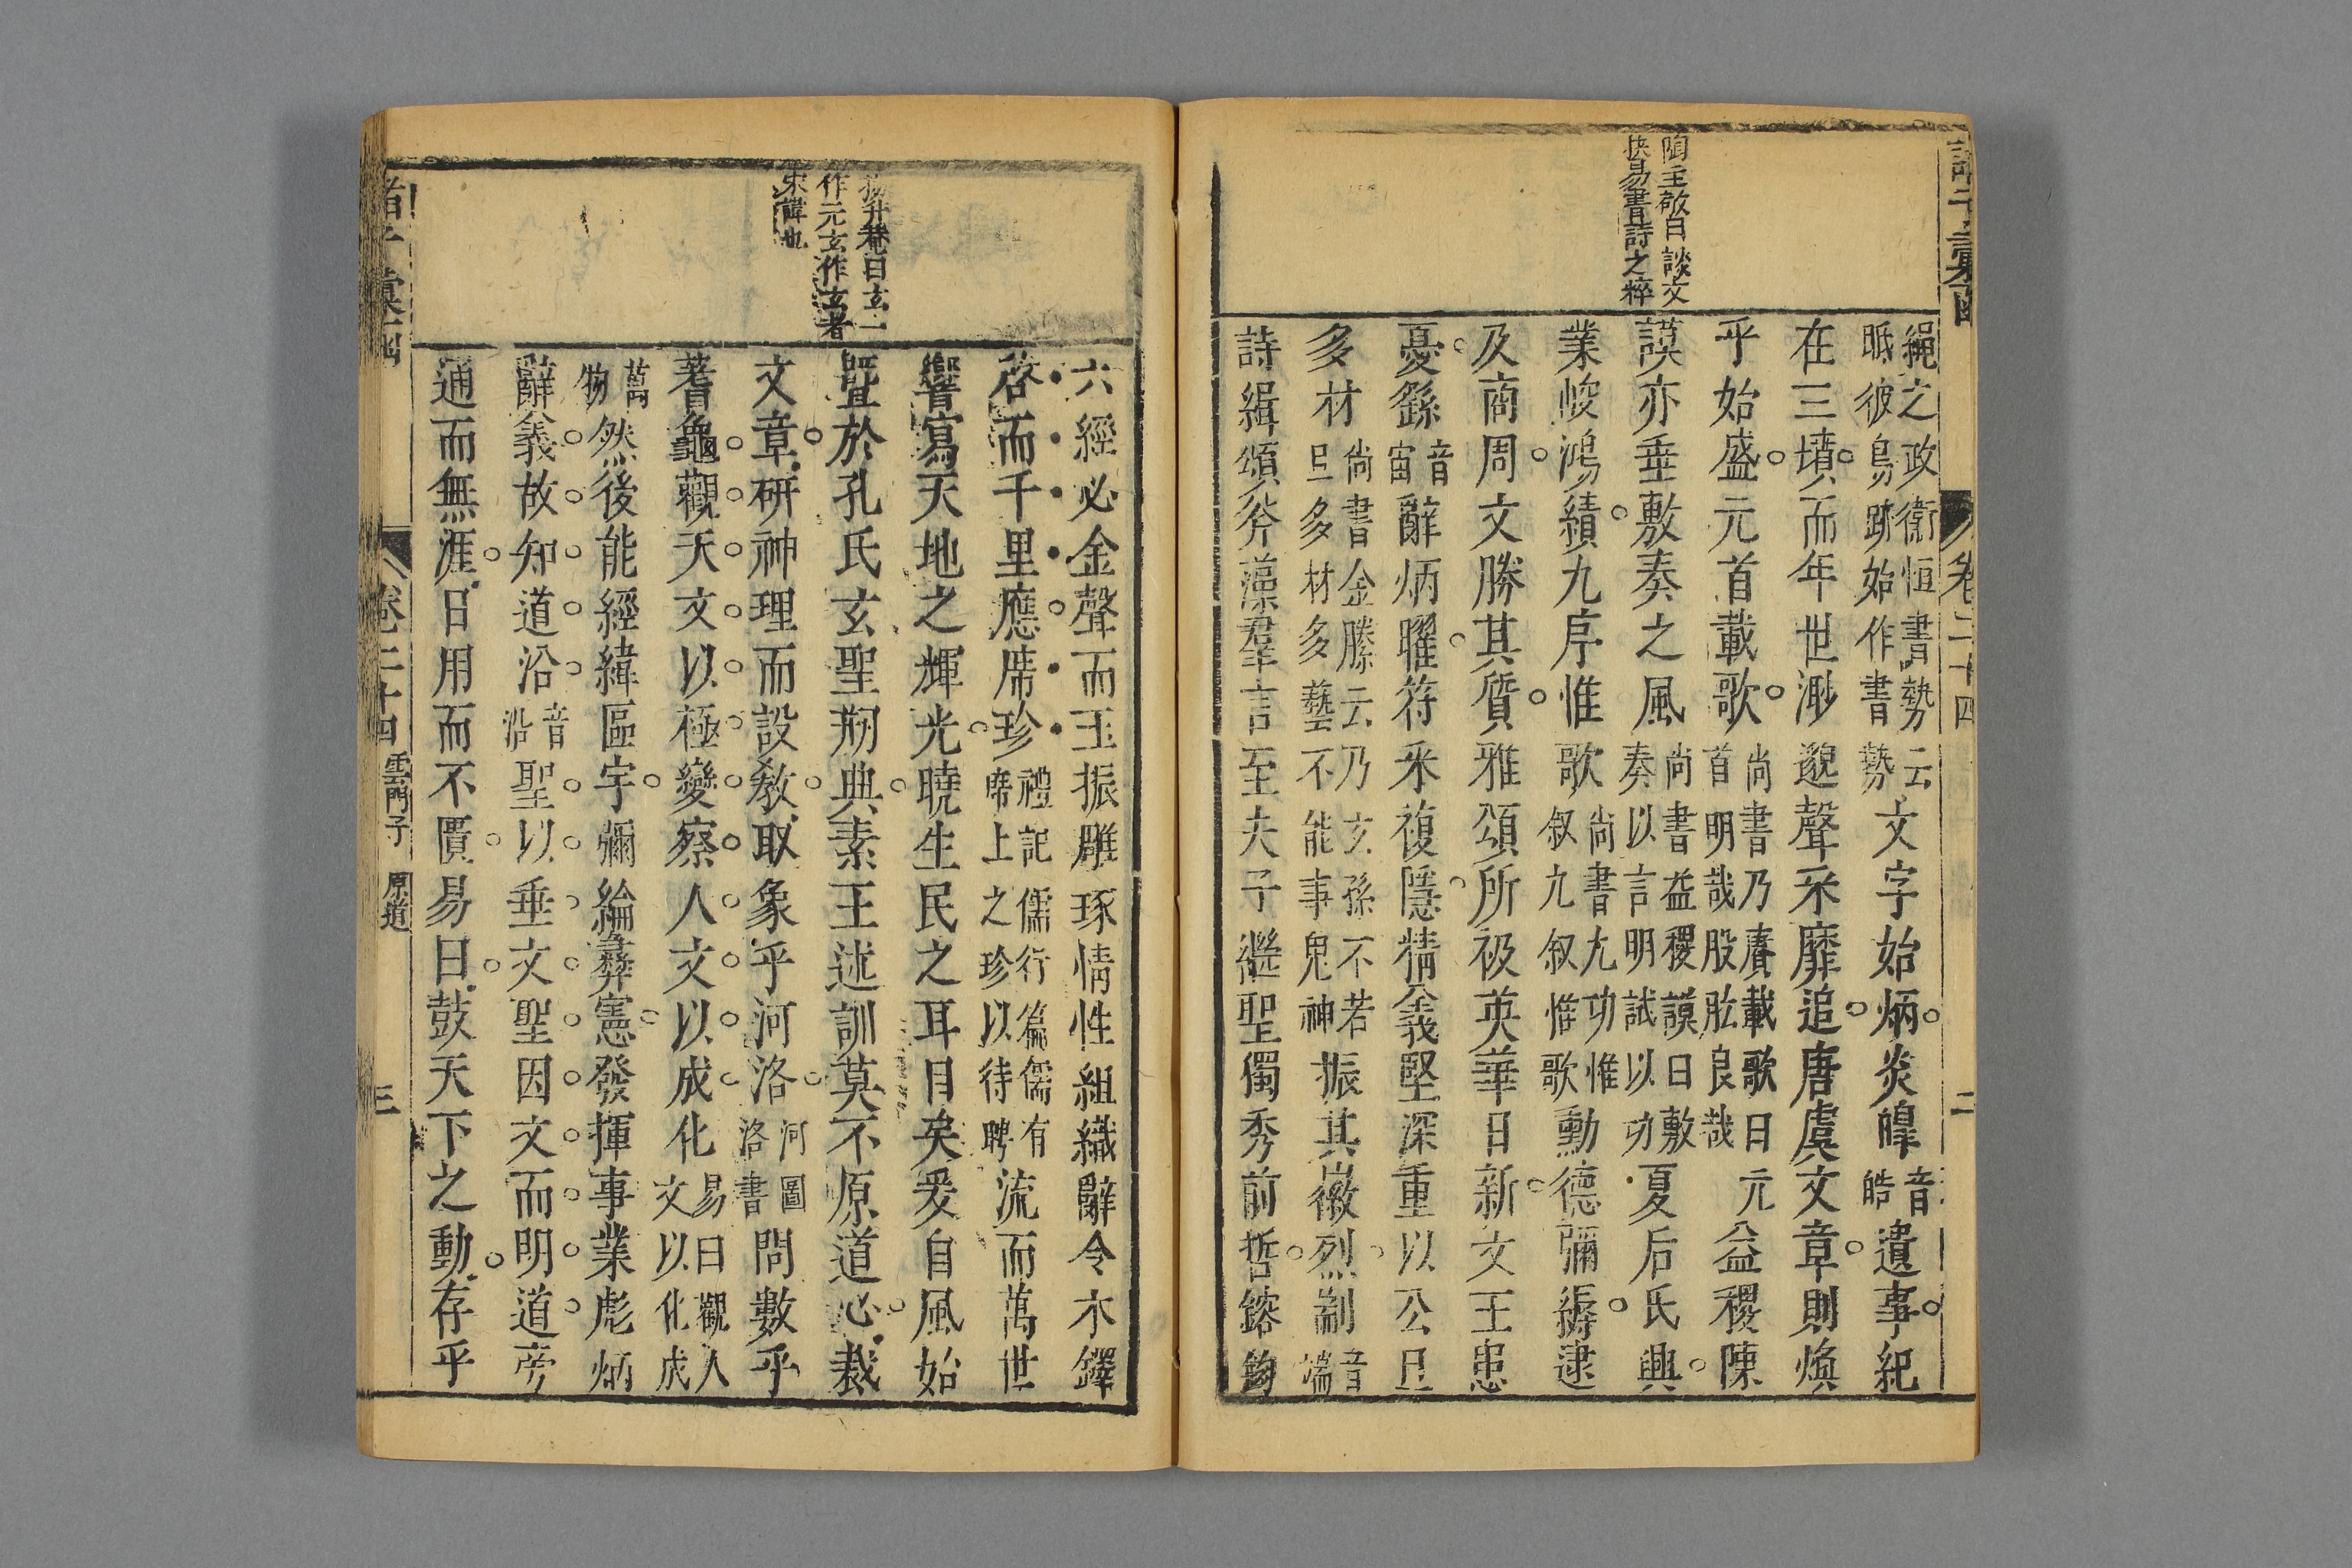 諸子彙函
卷二十四
二
陶主敬曰談文
抉易書詩之粹
繩之政衛恒書勢云
眡彼鳥跡始作書勢
文字始炳炎皥
音
皓
遺事紀
在三墳而年世渺邈聲采靡追唐虞文章則煥
乎始盛元首載歌
尚書乃賡載歌曰元
首明哉股肱良哉
益稷陳
謨亦垂敷奏之風
尚書益稷謨曰敷
奏以言明試以功
夏后氏興
業峻鴻績九序惟歌
尚書九功惟
叙九叙惟歌
勳德彌縟逮
及商周文勝其質雅頌所被英華日新文王患
憂繇
音
宙
辭炳曜符采複隱精義堅深重以公旦
多材
尚書金縢云乃玄孫不若
旦多材多藝不能事鬼神
振其徽烈剬
音
耑
詩緝頌斧藻羣言至夫子繼聖獨秀前哲鎔鈞
楊升菴曰玄一
作元玄作玄者
宋諱也
六經必金聲而玉振雕琢情性組織辭令木鐸
啓而千里應席珍
禮記儒行篇儒有
席上之珍以待聘
流而萬世
響寫天地之輝光曉生民之耳目矣爰自風始
曁於孔氏玄聖刱典素王述訓莫不原道心裁
文章研神理而設敎取象乎河洛
河圖
洛書
問數乎
蓍龜觀天文以極變察人文以成化
易曰觀人
文以化成
萬
物
然後能經緯區宇彌綸彝憲發揮事業彪炳
辭義故知道沿
音
沿
聖以垂文聖因文而明道旁
通而無涯日用而不匱易曰鼓天下之動存乎
諸子彙函
卷二十四
雲門子
原道
三